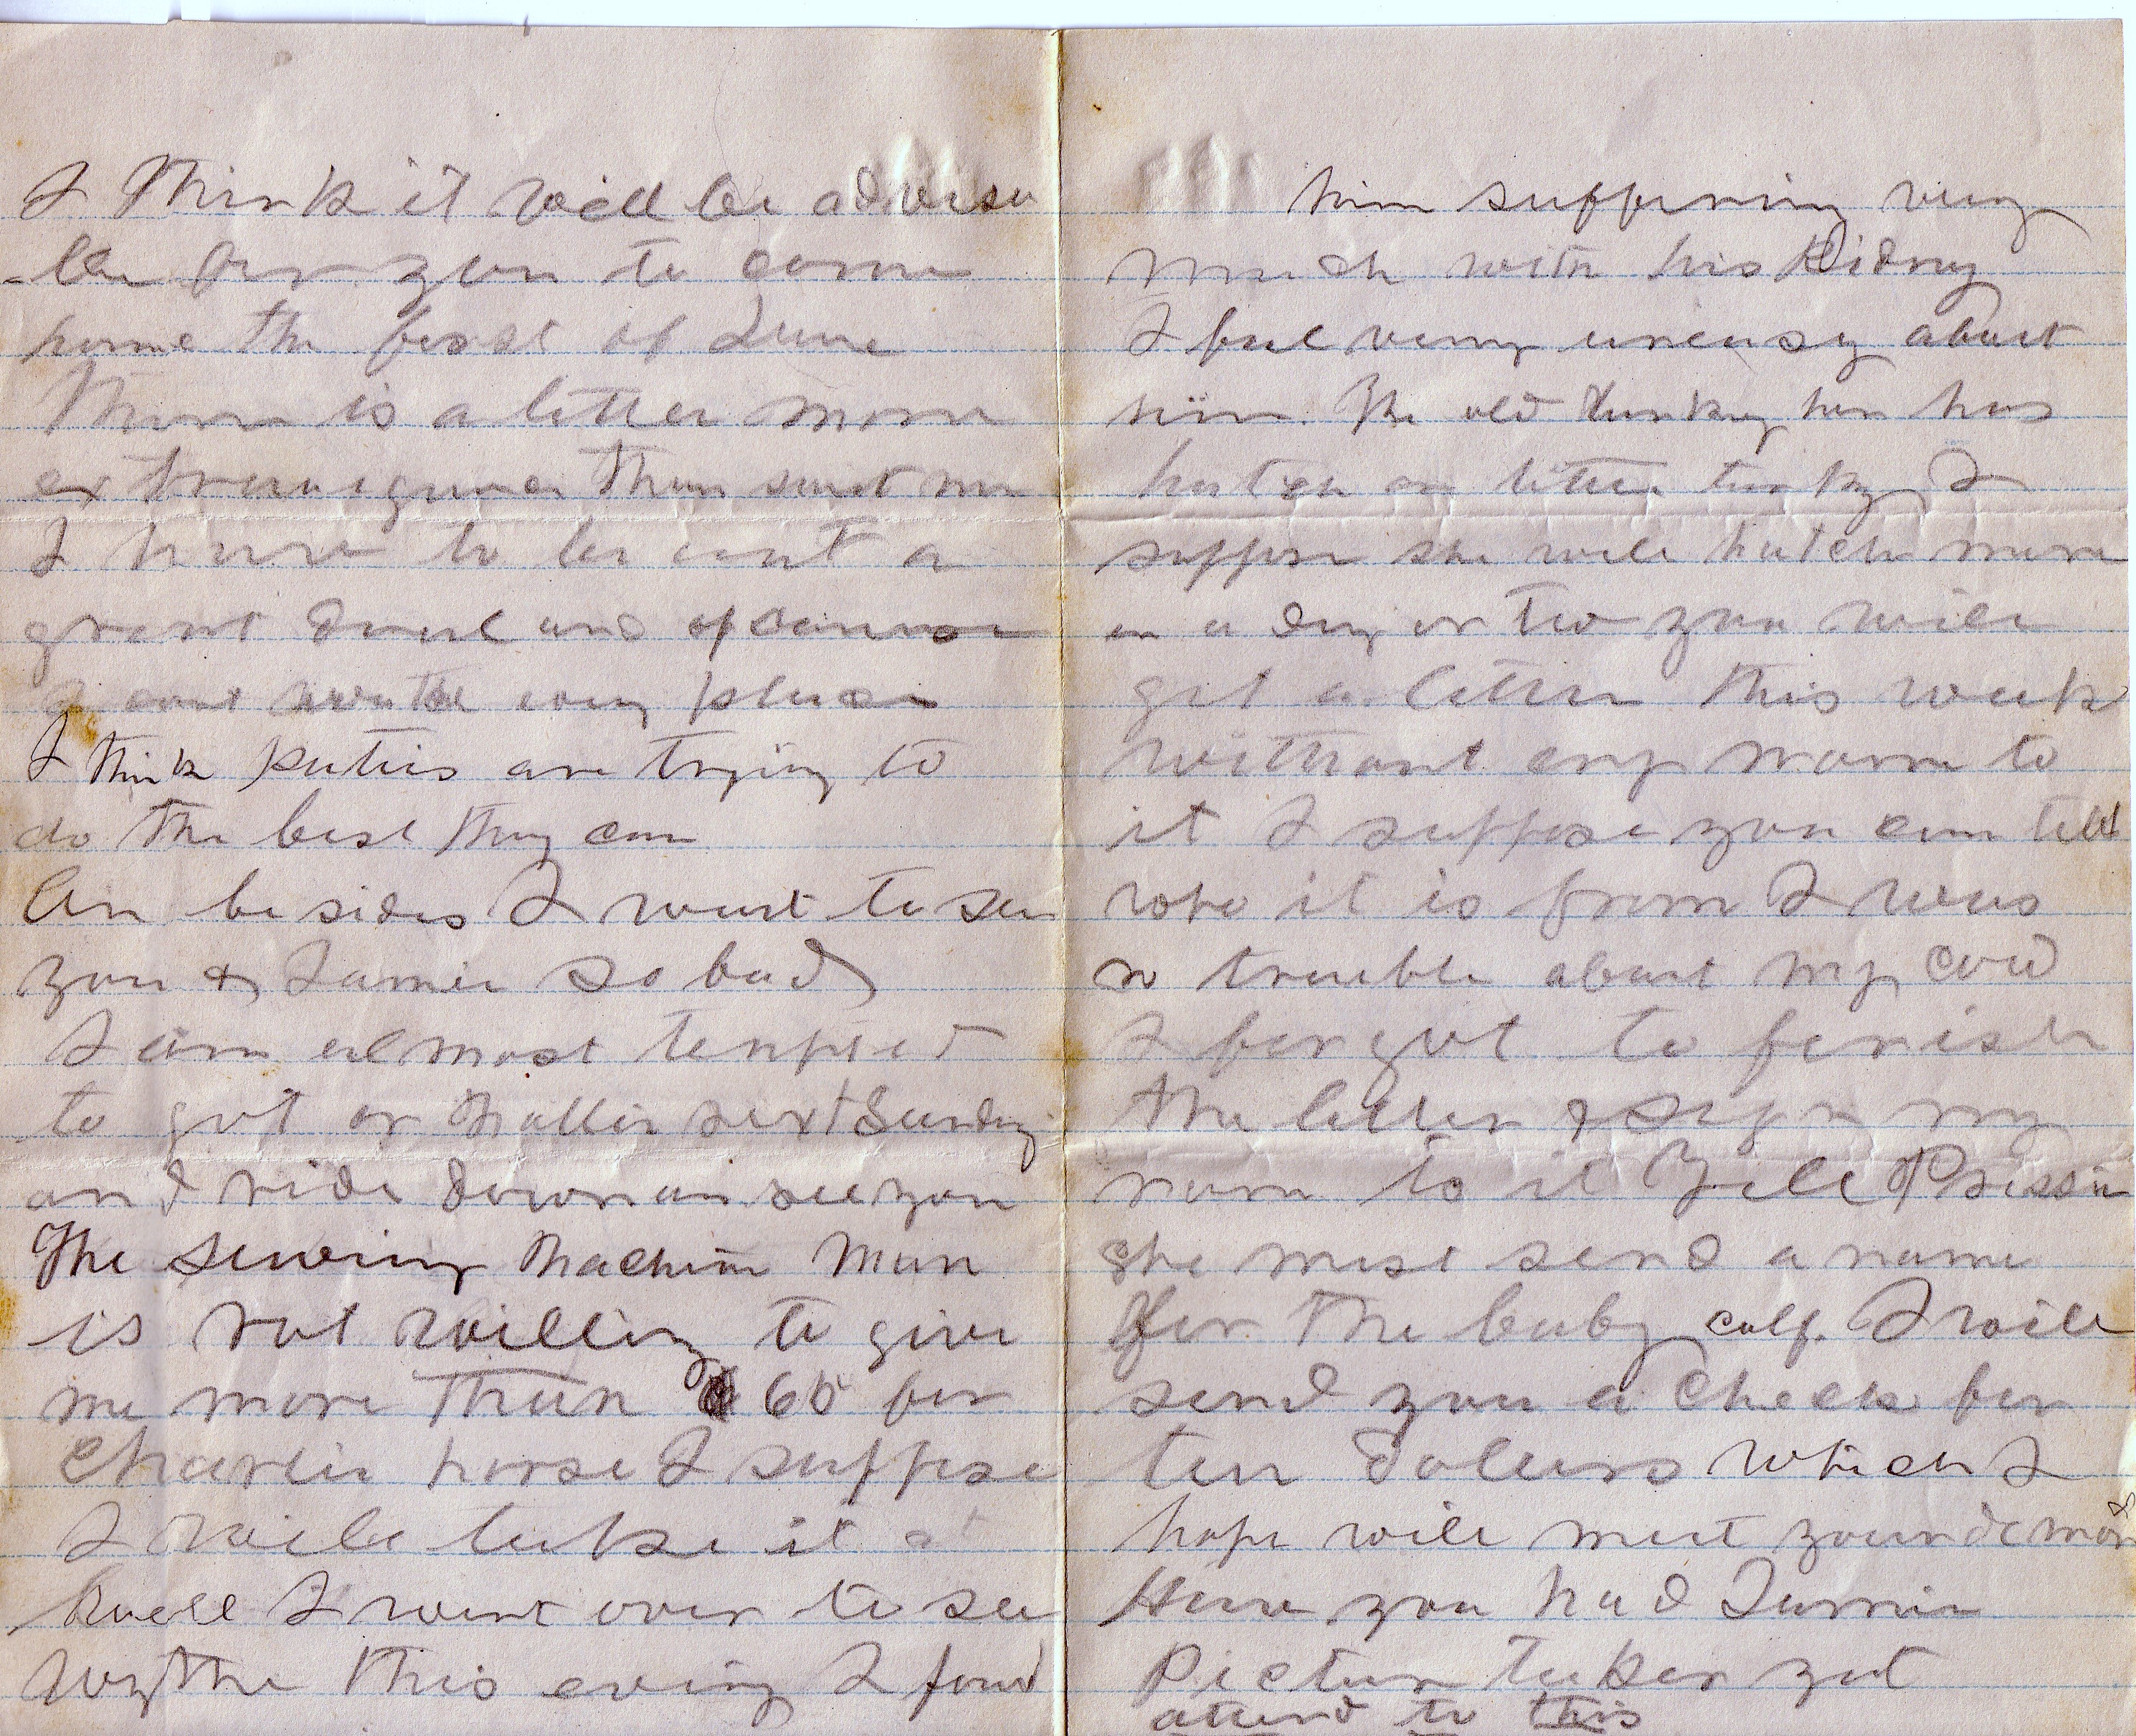 I think it will be advisa
-ble for you to come
home the first of June
There is a little more
extravigance than suit me
I have to be out a
great deal and of course
I cant every place
I think puties are trying to
do the best they can
An besides I want to see
you & Jamie so bad
I am almost tempted
to get on Mollie next Sunday
and ride down an see you
The Sewing Machine Man
is not willing to give
me more than 65 for
Charlie horse I suppose
I will take it at
Well I went over to see
Wythe this evening I found
him suffering very
much with his Kidney
I feel very uneasy about
him. The old turkey hen has
hatch on little turky I
suppose she will hatch more
in a day or two you will
get a letter this week
without any name to
it I suppose you can tell
who it is from I was
so trouble about my cow
I forgot to finish
the letter & sign my
name to it Tell Prissie
she must send a name
for the baby calf. I will
send you a Check for
ten dolars which I
hope will meet your demon
Have you had Jamie
Pictur taken yet
attend to this